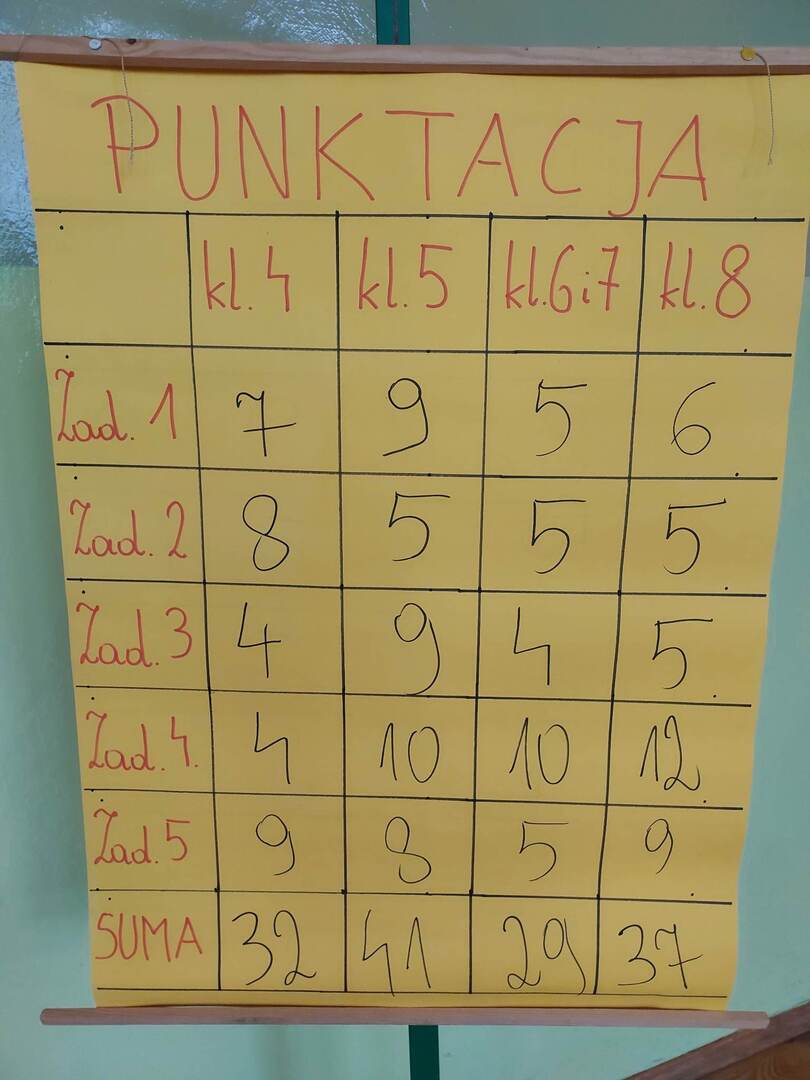 PUNKTACJA
kl. 4 kl. 5 kl. 6 i 7 kl. 8
Zad. 1 7 9 5 6
Zad. 2 8 5 5 5
Zad. 3 4 9 4 5
Zad. 4. 4 10 10 12
Zad. 5 9 8 5 9
SUMA 32 41 29 37